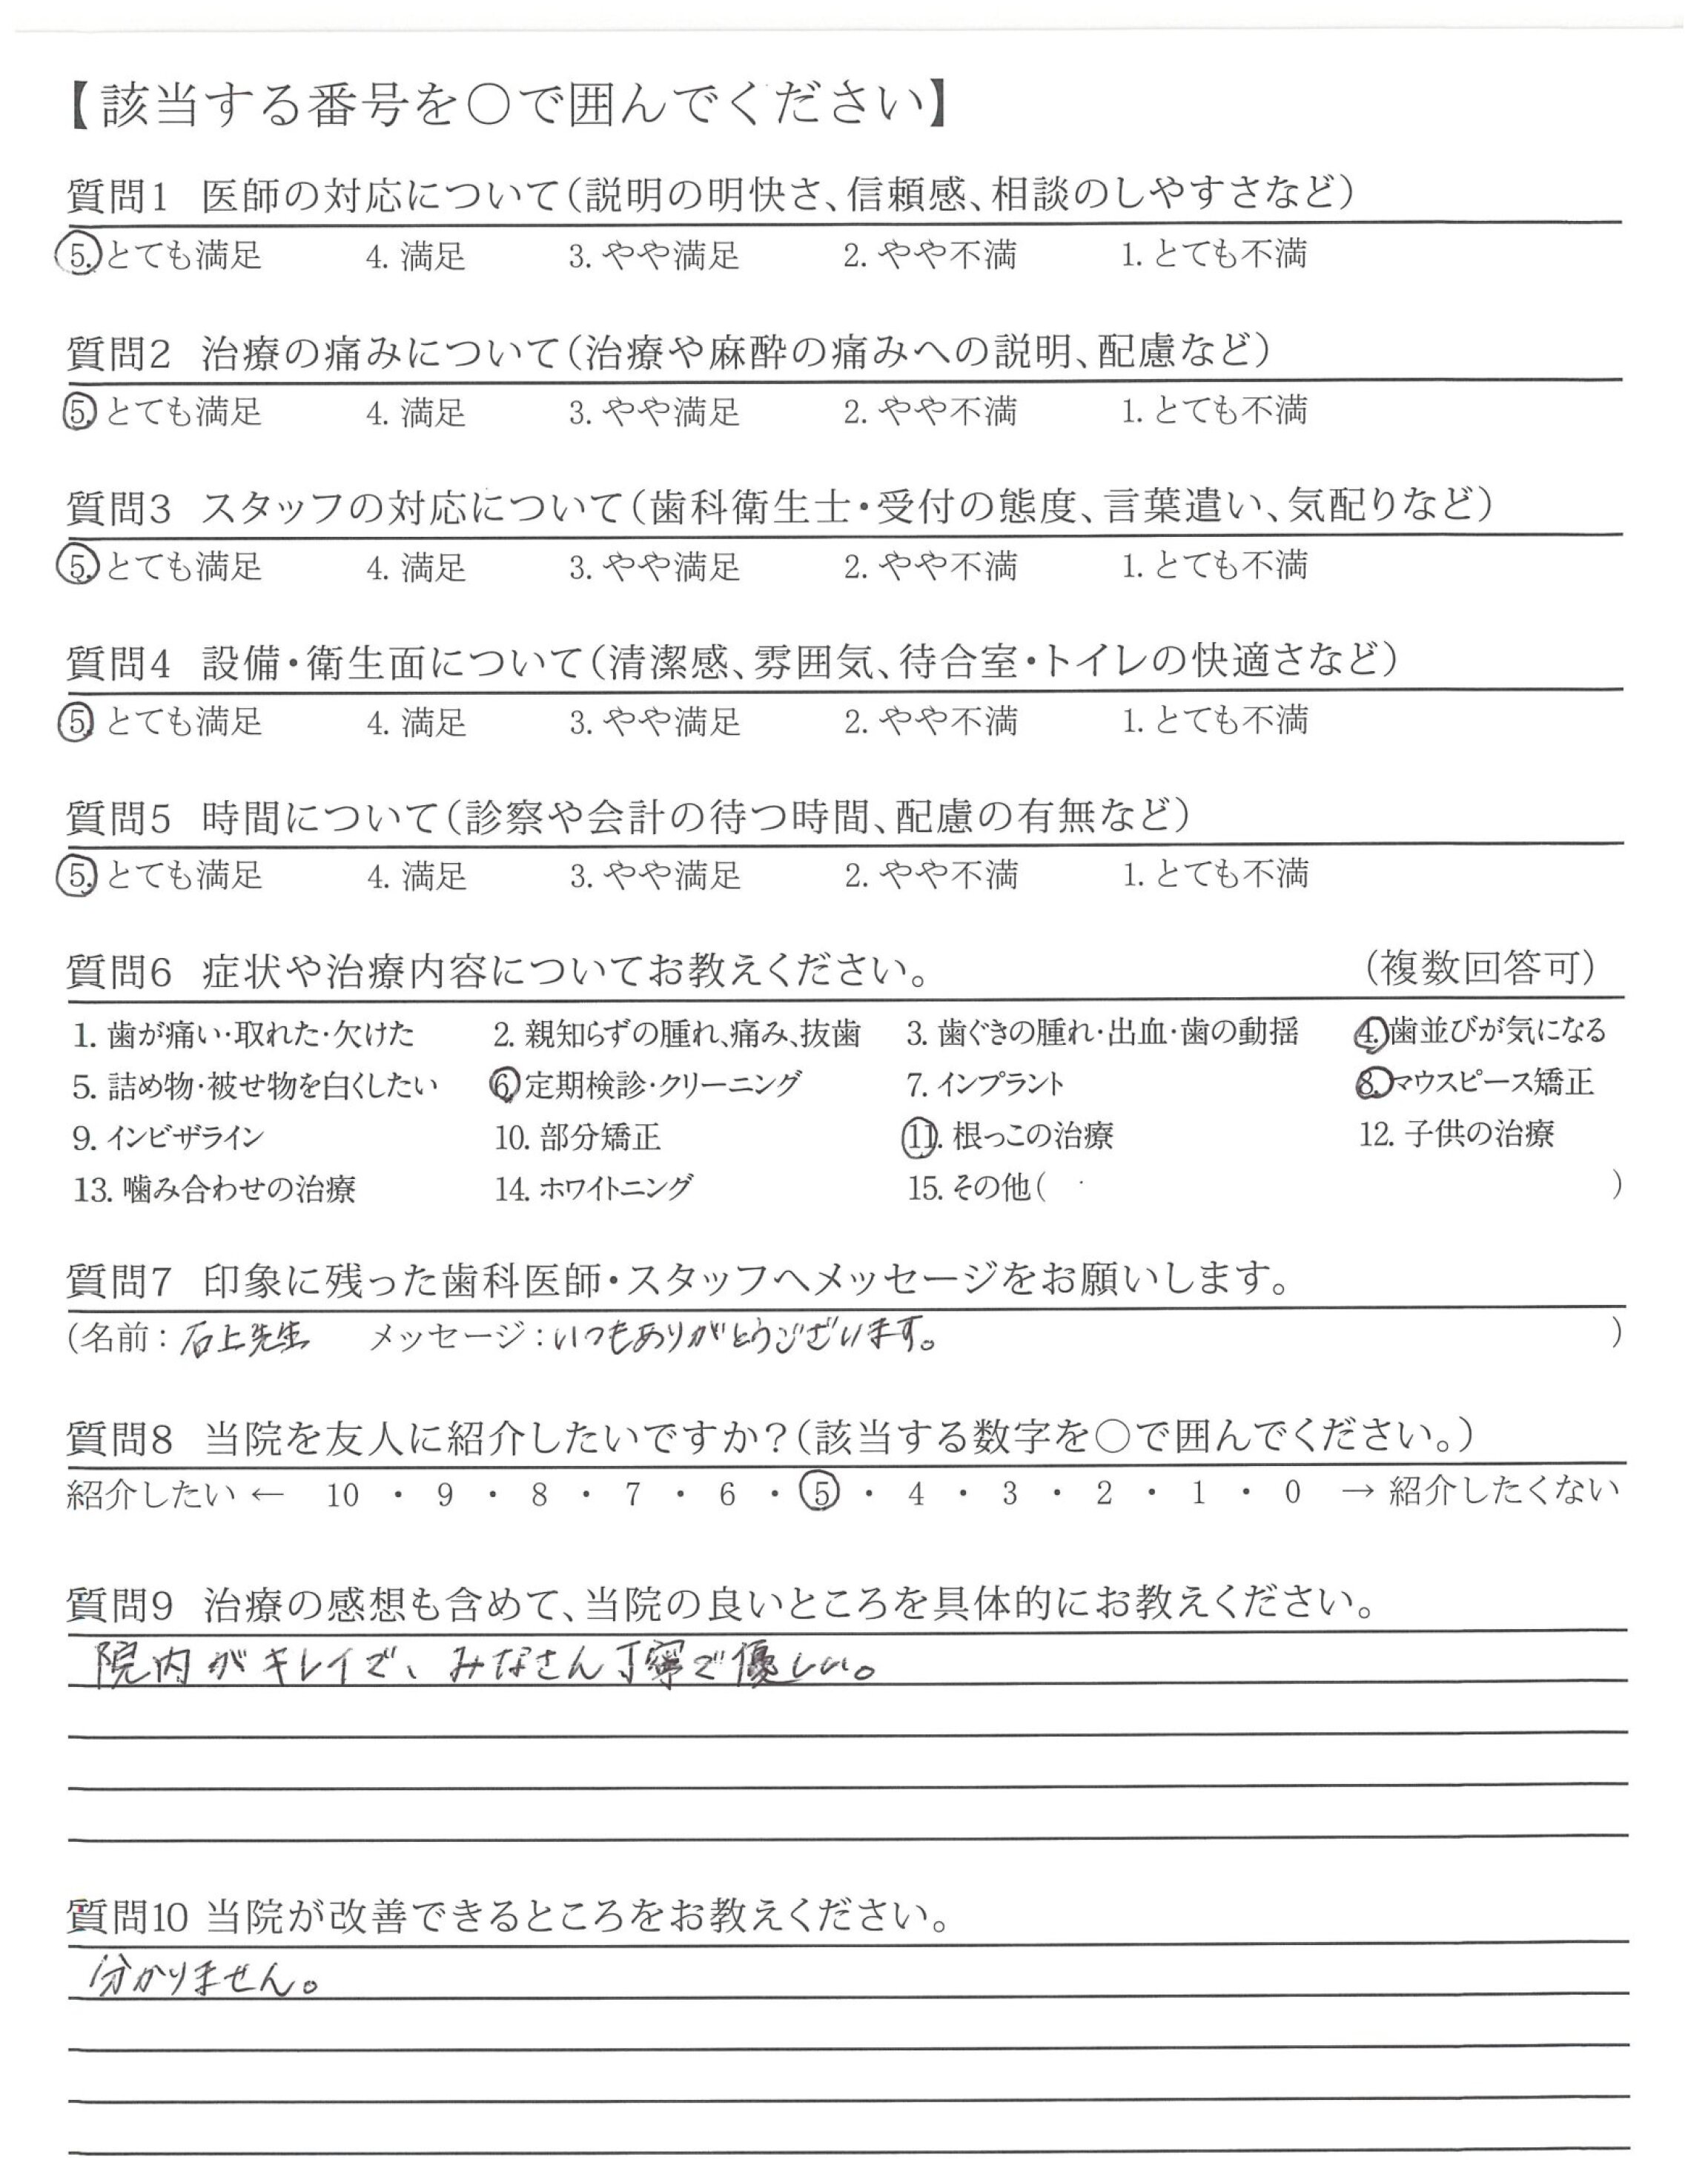 【該当する番号を○で囲んでください】
質問1 医師の対応について(説明の明快さ、信頼感、相談のしやすさなど)
5. とても満足 4. 満足 3. やや満足 2. やや不満 1. とても不満
質問2 治療の痛みについて(治療や麻酔の痛みへの説明、配慮など)
5. とても満足 4. 満足 3. やや満足 2. やや不満 1. とても不満
質問3 スタッフの対応について(歯科衛生士・受付の態度、言葉遣い、気配りなど)
5. とても満足 4. 満足 3. やや満足 2. やや不満 1. とても不満
質問4 設備・衛生面について(清潔感、雰囲気、待合室・トイレの快適さなど)
5. とても満足 4. 満足 3. やや満足 2. やや不満 1. とても不満
質問5 時間について(診察や会計の待つ時間、配慮の有無など)
5. とても満足 4. 満足 3. やや満足 2. やや不満 1. とても不満
質問6 症状や治療内容についてお教えください。 (複数回答可)
1. 歯が痛い・取れた・欠けた 2. 親知らずの腫れ、痛み、抜歯 3. 歯ぐきの腫れ・出血・歯の動揺 4. 歯並びが気になる
5. 詰め物・被せ物を白くしたい 6. 定期検診・クリーニング 7. インプラント 8. マウスピース矯正
9. インビザライン 10. 部分矯正 11. 根っこの治療 12. 子供の治療
13. 噛み合わせの治療 14. ホワイトニング 15. その他( )
質問7 印象に残った歯科医師・スタッフへメッセージをお願いします。
(名前:石上先生 メッセージ:いつもありがとうございます。 )
質問8 当院を友人に紹介したいですか?(該当する数字を○で囲んでください。)
紹介したい ← 10 ・ 9 ・ 8 ・ 7 ・ 6 ・ 5 ・ 4 ・ 3 ・ 2 ・ 1 ・ 0 → 紹介したくない
質問9 治療の感想も含めて、当院の良いところを具体的にお教えください。
院内がキレイで、みなさん丁寧で優しい。
質問10 当院が改善できるところをお教えください。
分かりません。